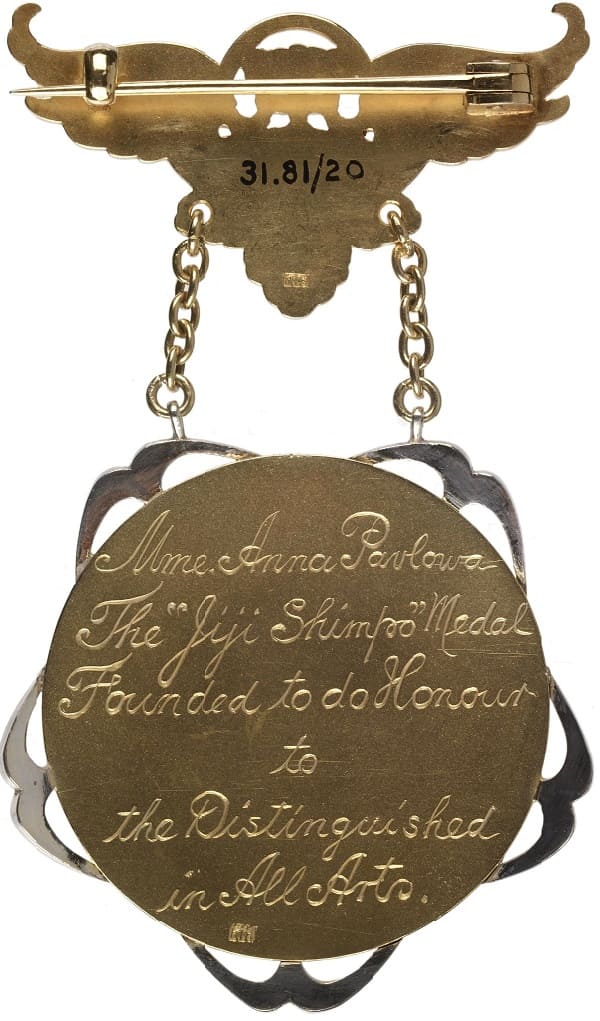 31.81/20
Mme. Anna Pavlowa
The "Jiji Shimpo" Medal
Founded to do Honour
to
the Distinguished
in All Arts.